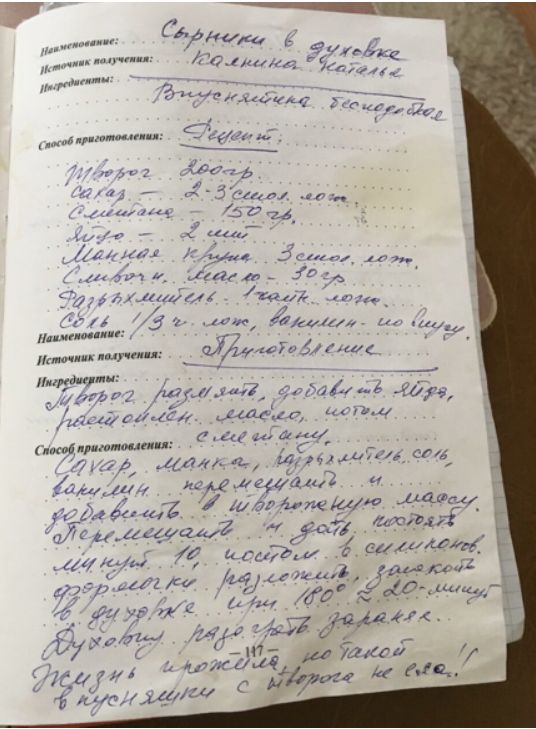 Наименование: Сырники в духовке
Источник получения: Калнина Наталья
Ингредиенты:
Вкуснятина бесподобная
Способ приготовления: Рецепт.
Творог 200гр
Сахар – 2-3 стол. лож.
Сметана – 150 гр,
Яйцо – 2 шт
Манная крупа 3 стол. лож.
Сливочн. масло – 30 гр
Разрыхлитель 1 чайн. лож.
Соль 1/3 ч. лож, ванилин – по вкусу.
Наименование:
Источник получения: Приготовление
Ингредиенты:
Творог размять, добавить яйца,
растоплен. масло, потом
Способ приготовления: сметану,
Сахар, манка, разрыхлитель, соль,
ванилин перемешать и
добавить в твороженую массу.
Перемешать и дать постоять
минут 10, потом в силиконов.
формочки разложить, запекать
в духовке при 180° ≈ 20-минут
Духовку разогреть заранее.
– 117 –
Жизнь прожила, но такой
вкусняшки с творога не ела!!